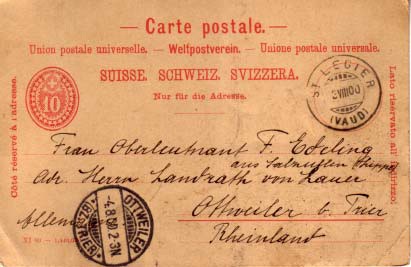 — Carte postale. —
Union postale universelle. — Weltpostverein. — Unione postale universale.
SUISSE. SCHWEIZ. SVIZZERA.
Nur für die Adresse.
Côté réservé à l'adresse.
Lato riservato all'
10
ST LEGIER
2 VIII 00
(VAUD)
Frau Oberleutnant F. Edeling
aus
Adr. Herrn Landrath von Lauer
Ottweiler b. Trier
Rheinland
Allem
OTTWEILER
4.8.00 2-3N
(BZ. TRIER)
XI 99